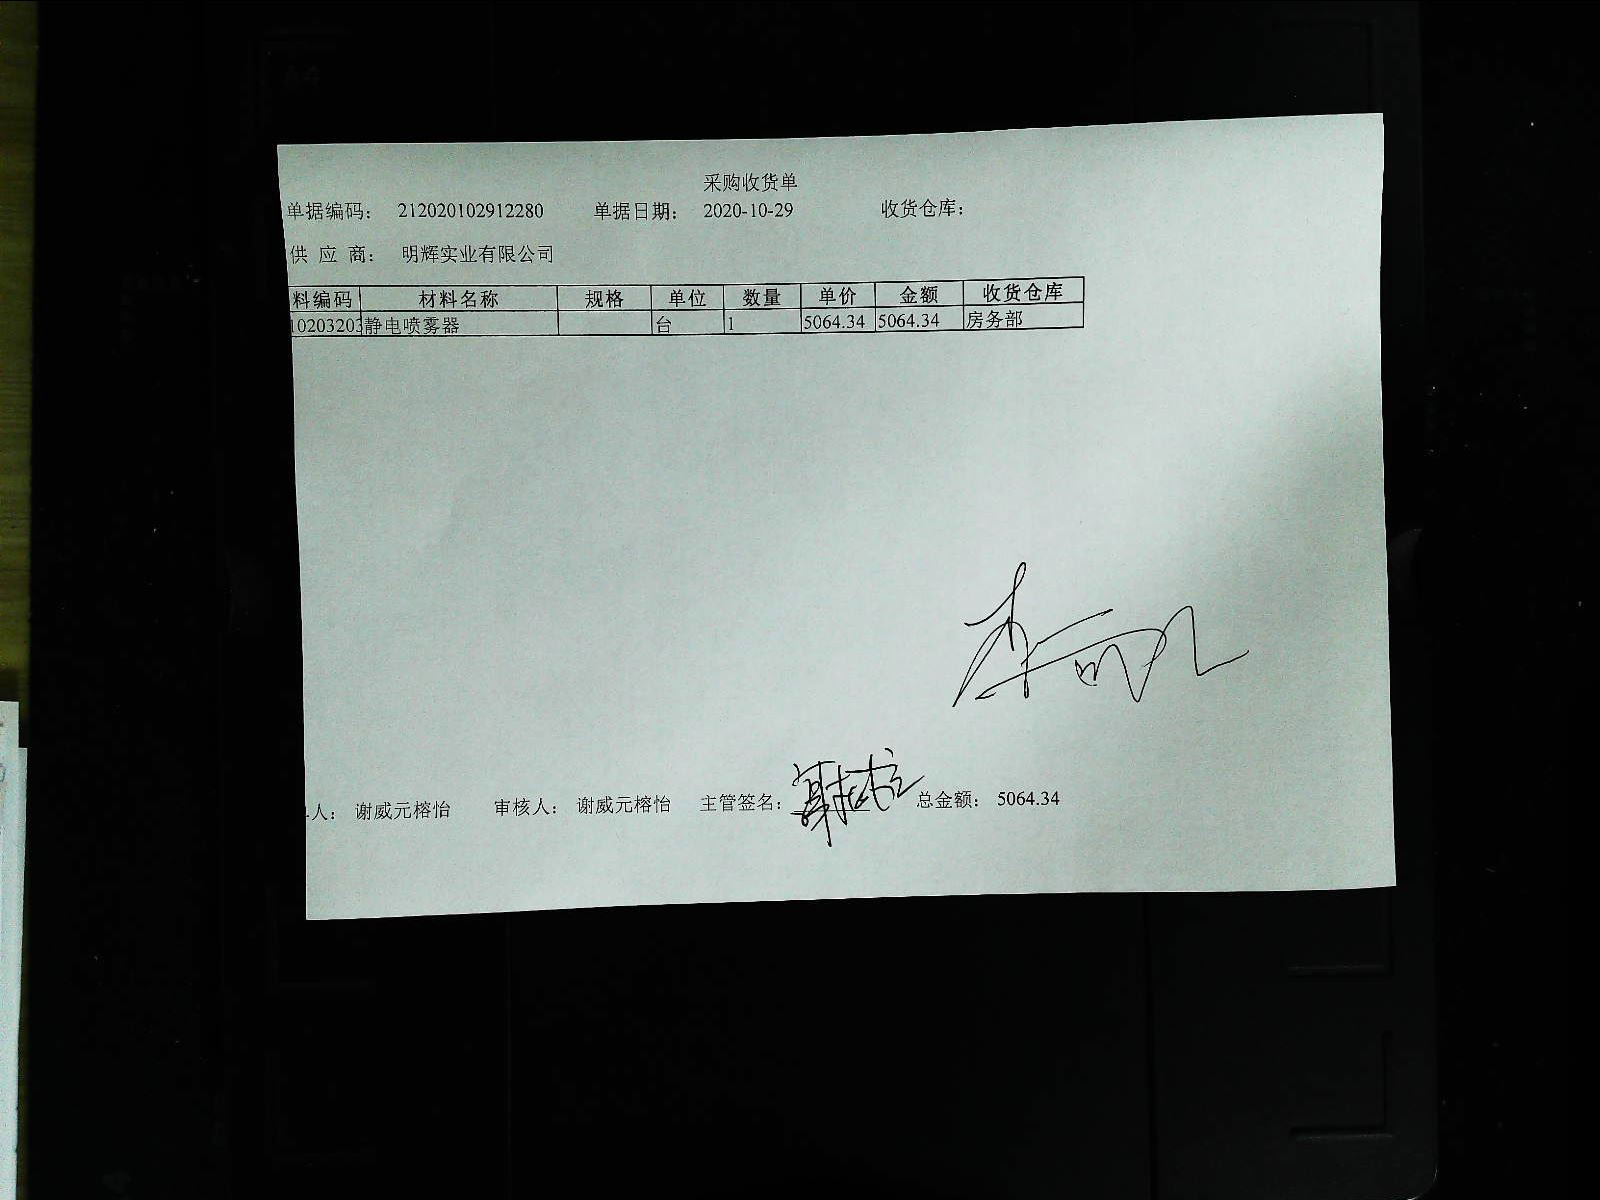 采购收货单
单据编码： 212020102912280 单据日期： 2020-10-29 收货仓库：
供 应 商： 明辉实业有限公司
料编码 材料名称 规格 单位 数量 单价 金额 收货仓库
10203203 静电喷雾器 台 1 5064.34 5064.34 房务部
人： 谢威元榕怡 审核人： 谢威元榕怡 主管签名： 总金额： 5064.34